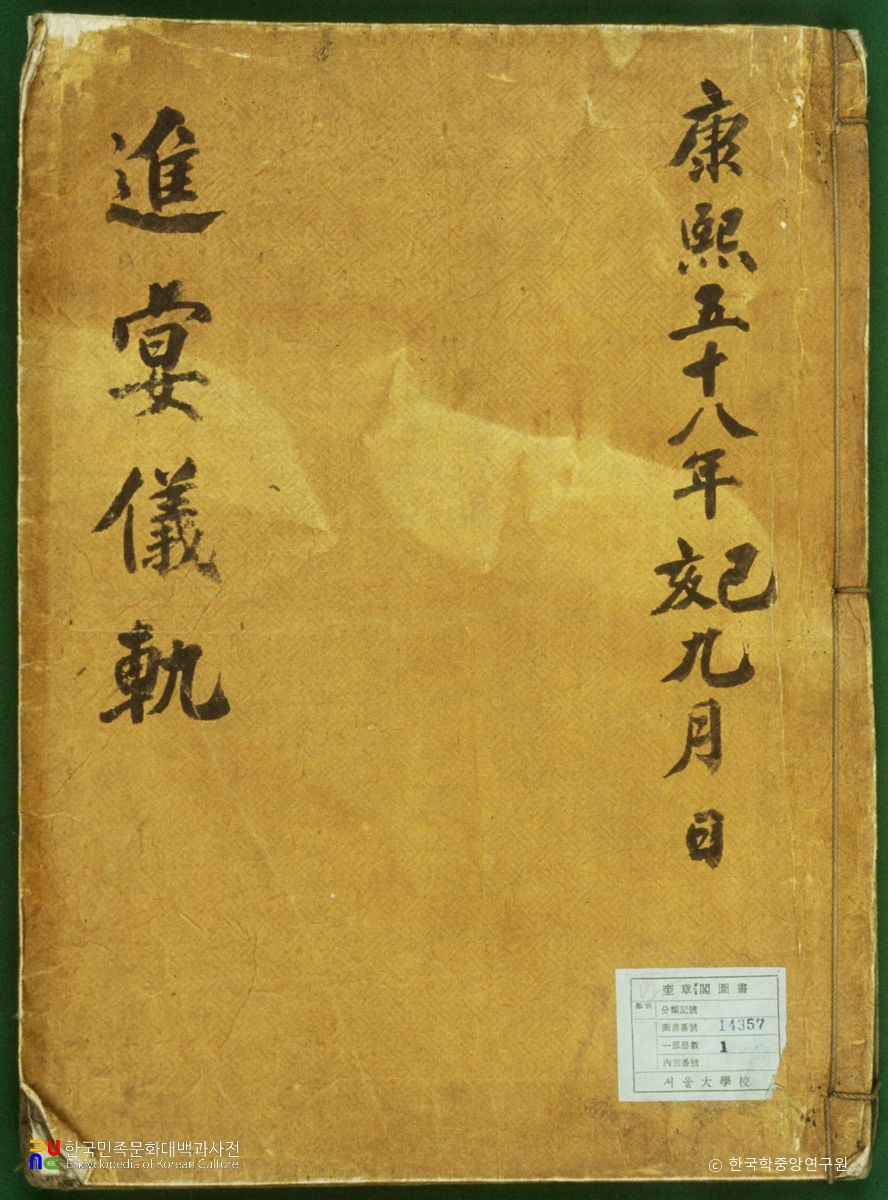 康熙五十八年己亥九月 日
進宴儀軌
奎章閣圖書
類別
分類記號
圖書番號 14357
一部冊數 1
內別番號
서울大學校
한국민족문화대백과사전
Encyclopedia of Korean Culture
© 한국학중앙연구원